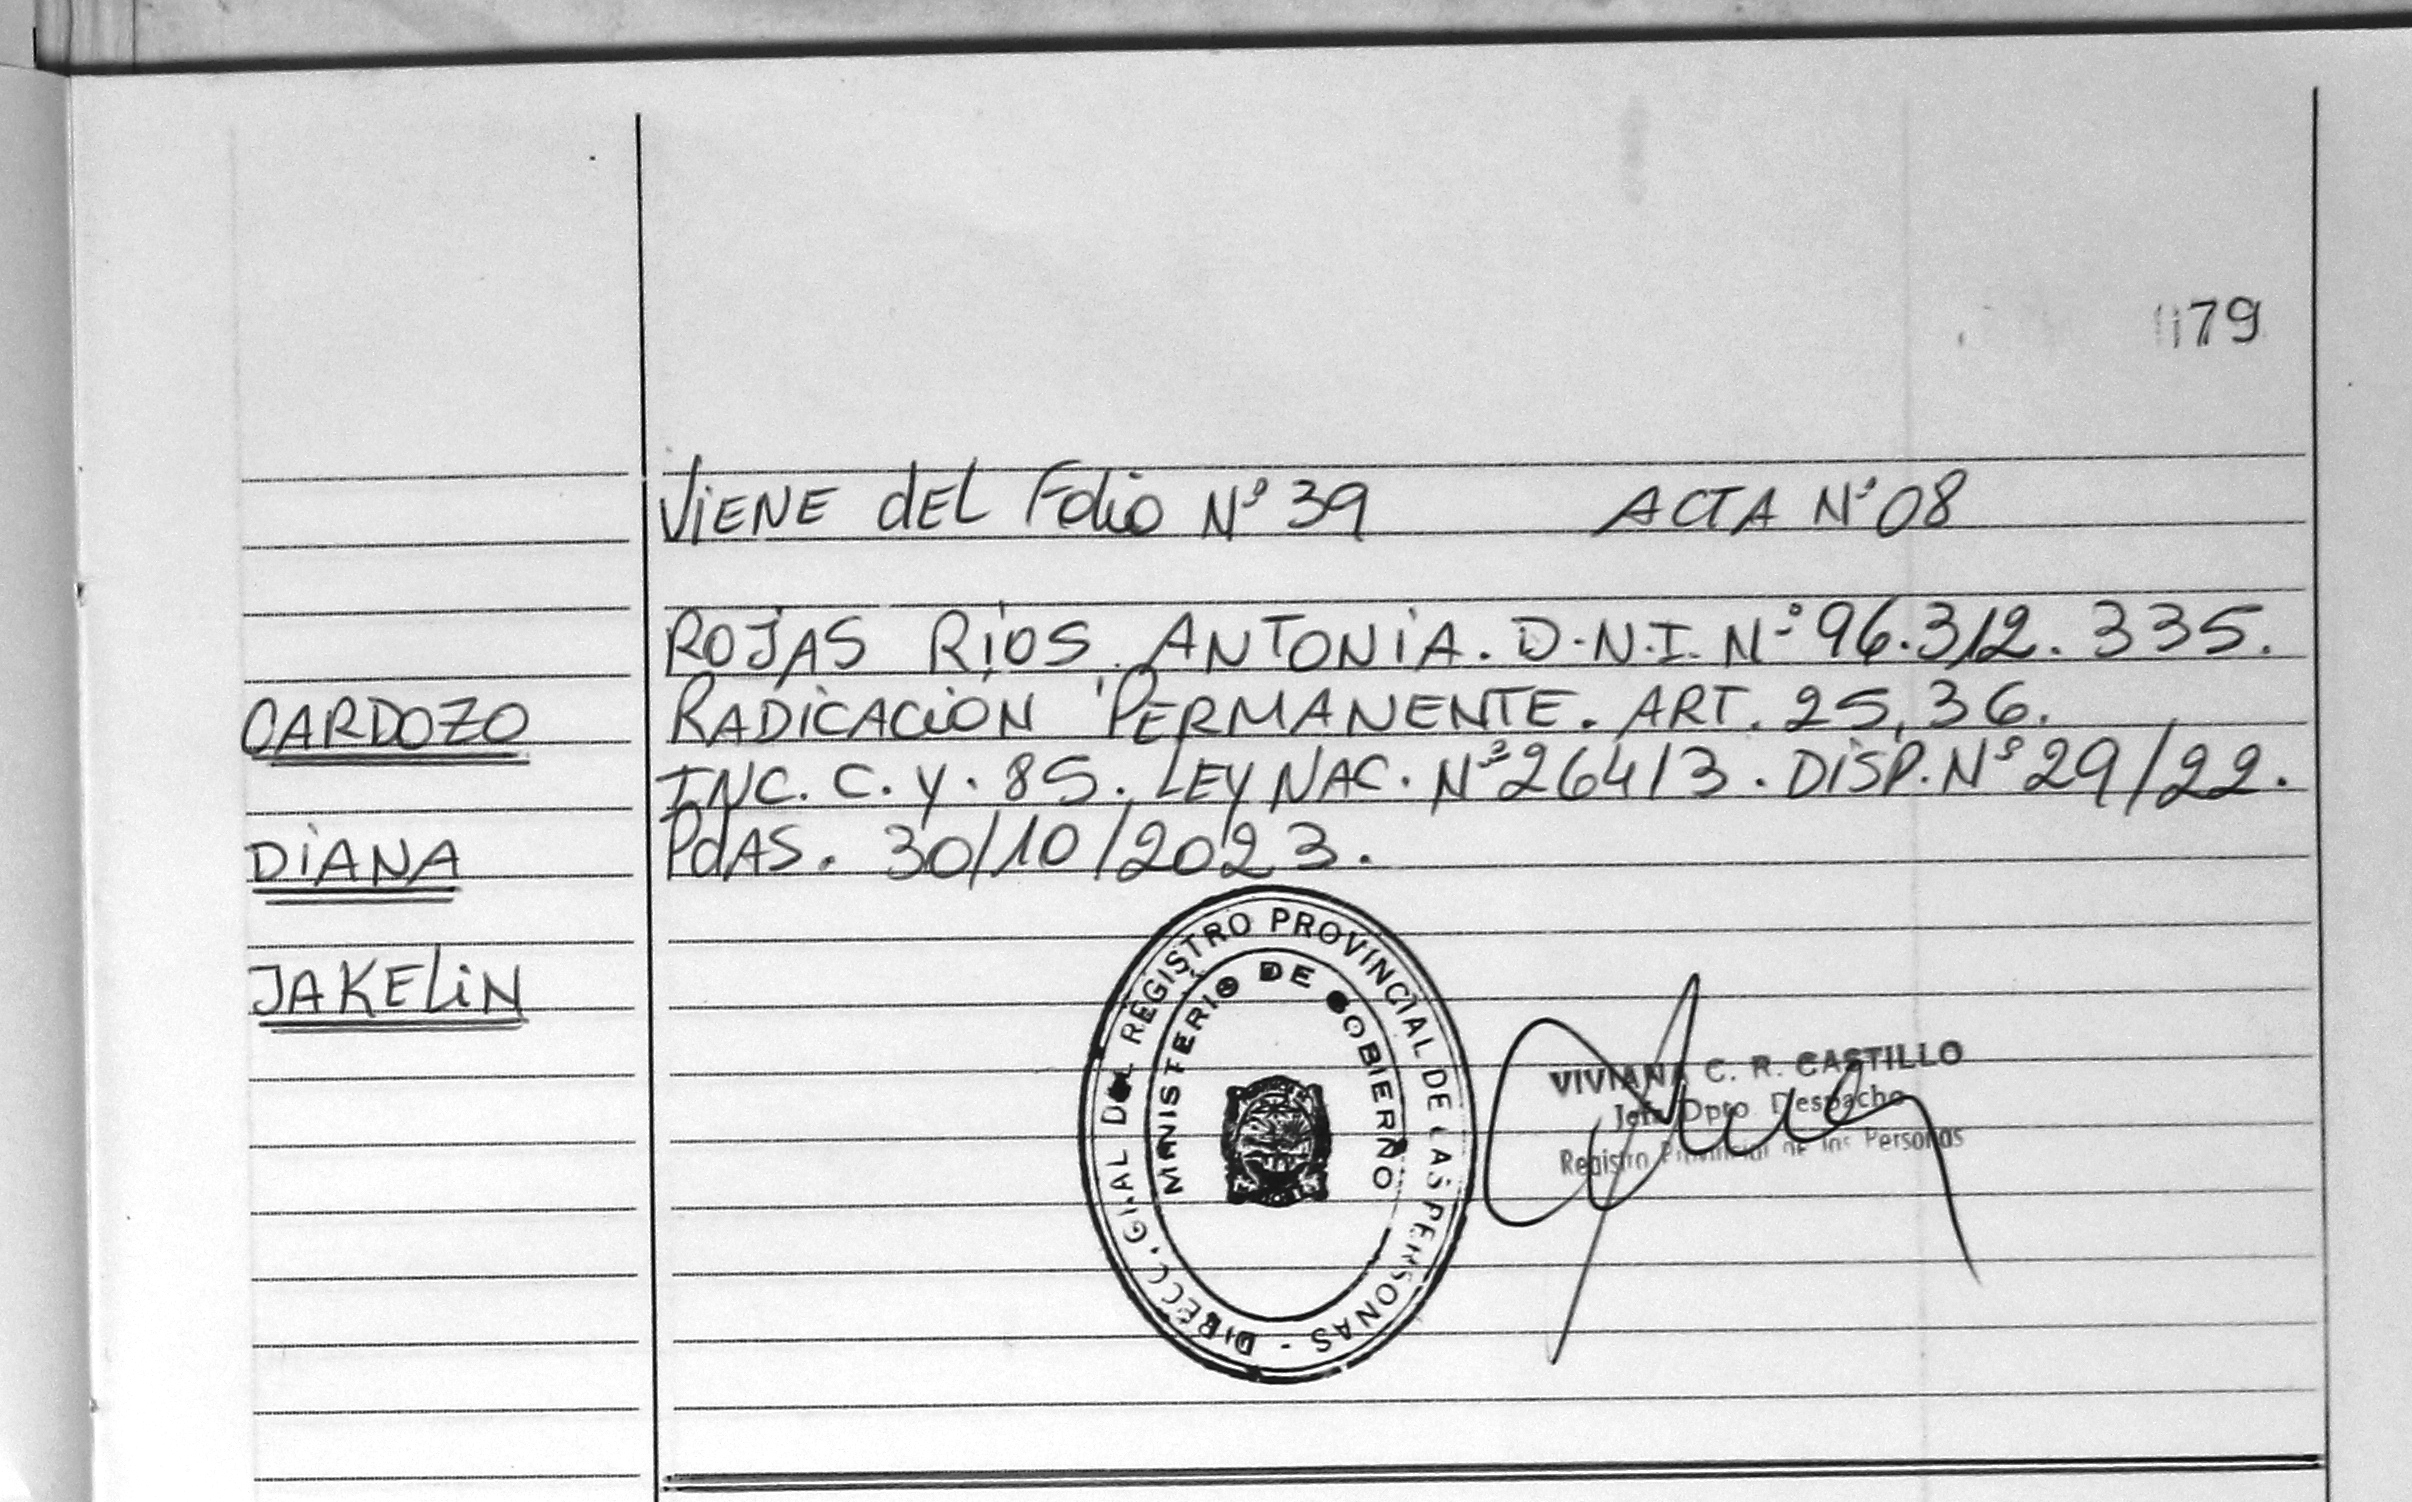 179
VIENE dEL Folio Nº 39 ACTA Nº 08
ROJAS RÍOS, ANTONIA. D.N.I. Nº 96.312.335.
CARDOZO
RADICACIÓN PERMANENTE. ART. 25, 36.
INC. C. Y. 85. LEY NAC. Nº 26413. DISP. Nº 29/22.
DIANA
PdAS. 30/10/2023.
JAKELIN
DIRECC. GRAL DEL REGISTRO PROVINCIAL DE LAS PERSONAS -
MINISTERIO DE GOBIERNO
VIVIANA C. R. CASTILLO
Jefa Dpto Despacho
Registro Provincial de las Personas